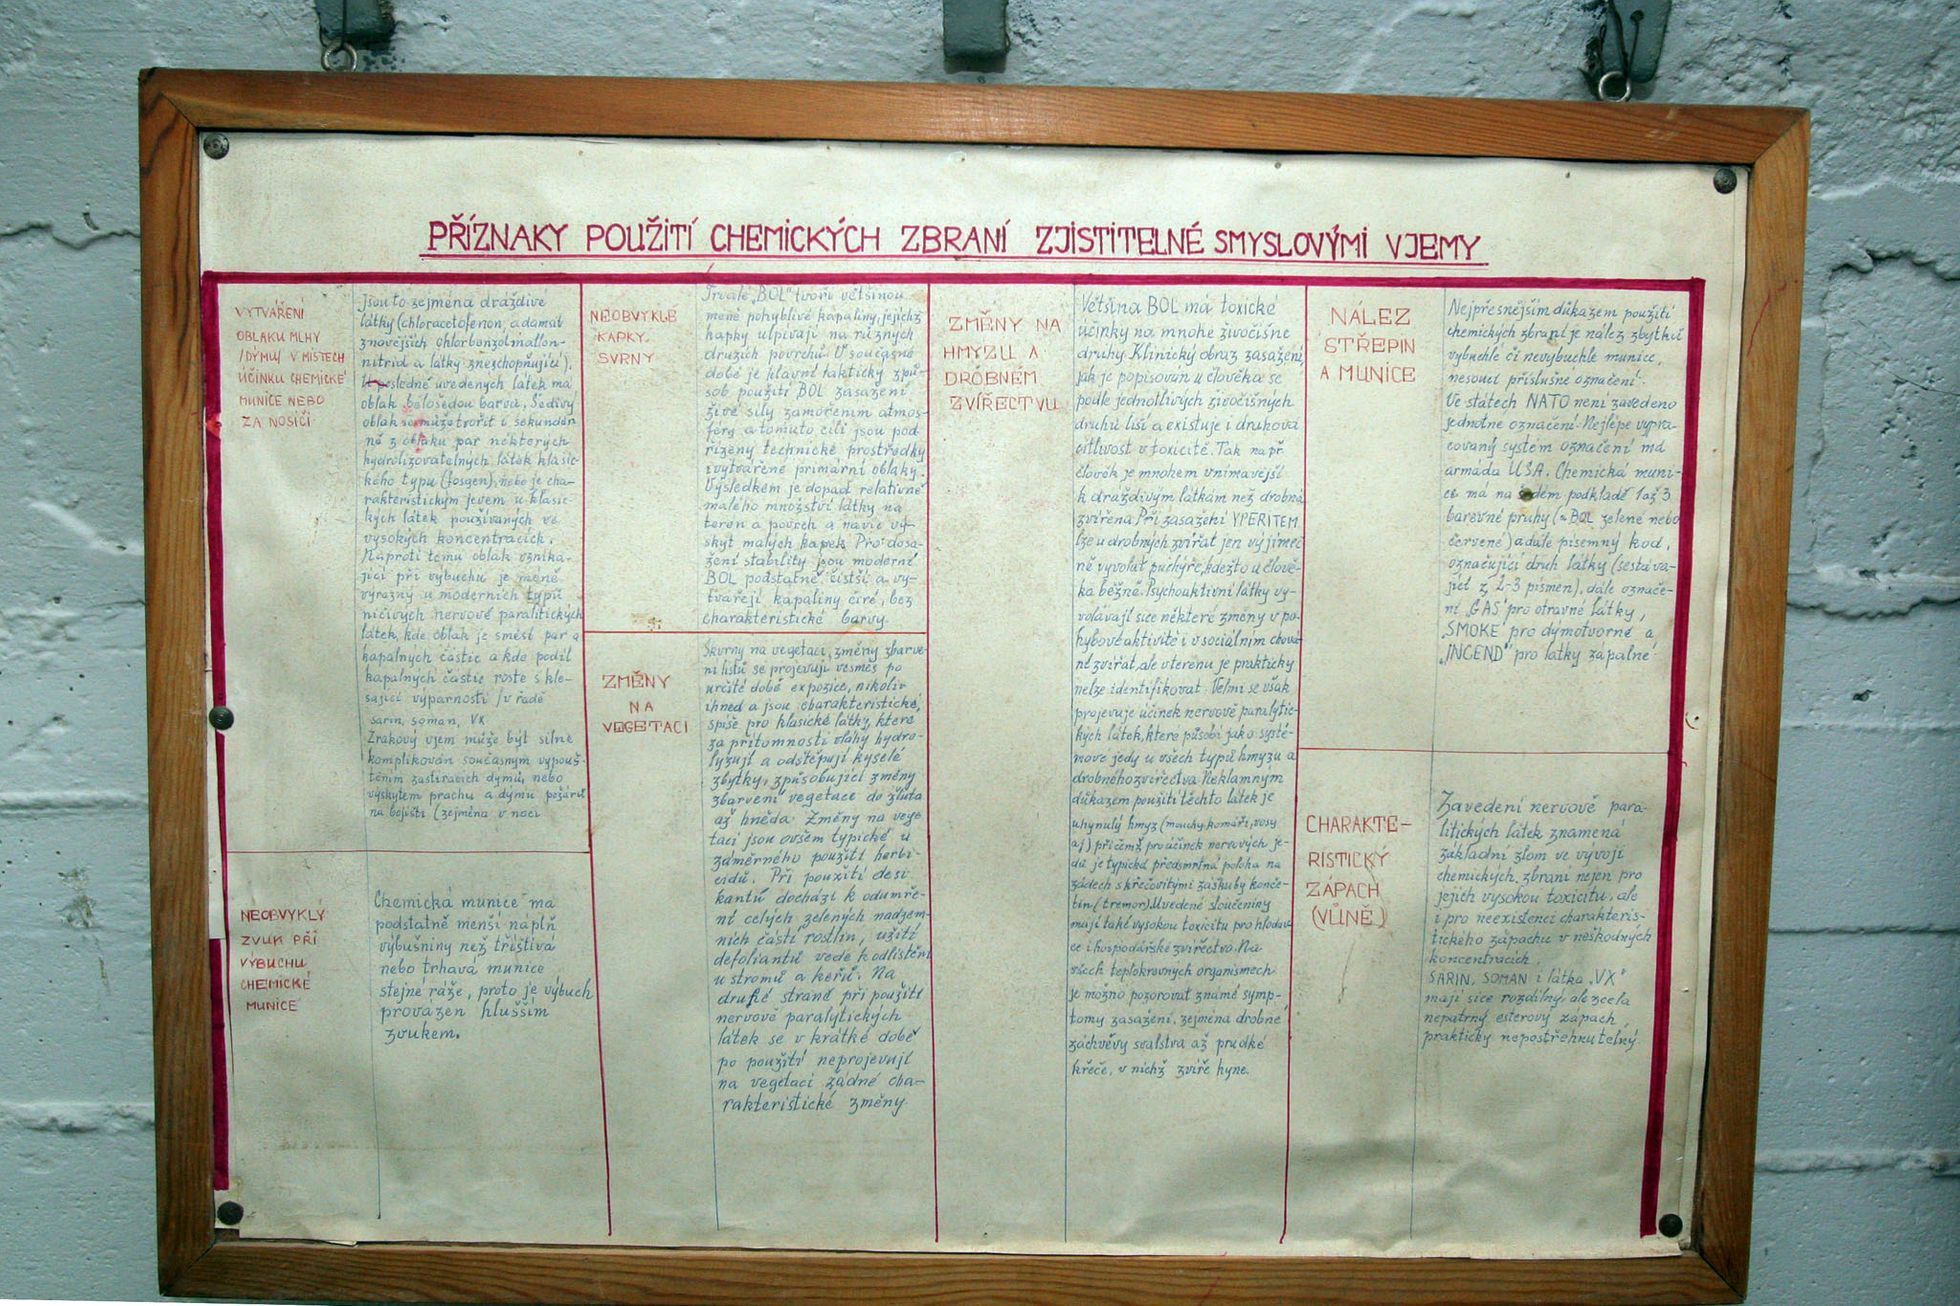 PŘÍZNAKY POUŽITÍ CHEMICKÝCH ZBRANÍ ZJISTITELNÉ SMYSLOVÝMI VJEMY
VYTVÁŘENÍ
OBLAKU MLHY
/DÝMU/ V MÍSTECH
ÚČINKU CHEMICKÉ
MUNICE NEBO
ZA NOSIČI
Jsou to zejména dráždivé
látky (chloracetofenon, adamsit
z novějších ohlorbenzalmallon-
nitrid a látky zneschopňující).
U posledně uvedených látek má
oblak bělošedou barvu. Šedivý
oblak se může tvořit i sekundár
ně z oblaku par některých
hydrolizovatelných látek klasic-
kého typu (fosgen), nebo je cha-
rakteristickým jevem u klasic-
kých látek používaných ve
vysokých koncentracích.
Naproti tomu oblak vznika-
jící při výbuchu je méně
výrazný u moderních typů
ničivých nervově paralitických
látek, kde oblak je směsí par a
kapalných částic a kde podíl
kapalných částic roste s kle-
sající výparností /v řadě
sarin, soman, VX
Zrakový vjem může být silně
komplikován současným vypouš-
těním zastíracích dýmů, nebo
výskytem prachu a dýmu požárů
na bojišti (zejména v noci
NEOBVYKLÝ
ZVUK PŘI
VÝBUCHU
CHEMICKÉ
MUNICE
Chemická munice má
podstatně menší náplň
výbušniny než tříštivá
nebo trhavá munice
stejné ráže, proto je výbuch
provázen hlušším
zvukem.
NEOBVYKLÉ
KAPKY,
SVRNY
Trvalé „BOL" tvoří většinou
méně pohyblivé kapaliny, jejichž
kapky ulpívají na různých
druzích povrchů. V současné
době je hlavní taktický způ-
sob použití BOL zasažení
živé síly zamořením atmos-
féry a tomuto cíli jsou pod
řízeny technické prostředky
i vytvářené primární oblaky.
Výsledkem je dopad relativně
malého množství látky na
terén a povrch a navíc vý-
skyt malých kapek. Pro dosa-
žení stability jsou moderní
BOL podstatně čistší a vy-
tvářejí kapaliny čiré, bez
charakteristické barvy.
ZMĚNY
NA
VEGETACI
Skvrny na vegetaci, změny zbarve-
ní listů se projevují vesměs po
určité době expozice, nikoliv
ihned a jsou charakteristické,
spíše pro klasické látky, které
za přítomnosti vláhy hydro-
lyzují a odštěpují kyselé
zbytky, způsobující změny
zbarvení vegetace do žluta
až hněda. Změny na vege
taci jsou ovšem typické u
záměrného použití herbi-
cidů. Při použití desi
kantů dochází k odumře-
ní celých zelených nadzem-
ních částí rostlin, užití
defoliantů vede k odlistění
u stromů a keřů. Na
druhé straně při použití
nervově paralytických
látek se v krátké době
po použití neprojevují
na vegetaci žádné cha-
rakteristické změny.
ZMĚNY NA
HMYZU A
DROBNÉM
ZVÍŘECTVU
Většina BOL má toxické
účinky na mnohé živočišné
druhy. Klinický obraz zasažení,
jak je popisován u člověka se
podle jednotlivých živočišných
druhů liší a existuje i druhová
citlivost v toxicitě. Tak např.
člověk je mnohem vnímavější
k dráždivým látkám než drobná
zvířena. Při zasažení YPERITEM
lze u drobných zvířat jen výjimeč
ně vyvolat puchýře, kdežto u člově-
ka běžně. Psychoaktivní látky vy-
volávají sice některé změny v po-
hybové aktivitě i v sociálním chová
ní zvířat, ale v terénu je prakticky
nelze identifikovat. Velmi se však
projevuje účinek nervově paralytic-
kých látek, které působí jako systé-
mové jedy u všech typů hmyzu a
drobného zvířectva. Neklamným
důkazem použití těchto látek je
uhynulý hmyz (mouchy, komáři, vosy
aj) přičemž pro účinek nervových je-
dů je typická předsmrtná poloha na
zádech s křečovitými záškuby konče-
tin (tremor). Uvedené sloučeniny
mají také vysokou toxicitu pro hlodav
ce i hospodářské zvířectvo. Na
všech teplokrevných organismech
je možno pozorovat známé symp-
tomy zasažení, zejména drobné
záchvěvy svalstva až prudké
křeče, v nichž zvíře hyne.
NÁLEZ
STŘEPIN
A MUNICE
Nejpřesnějším důkazem použití
chemických zbraní je nález zbytků
vybuchlé či nevybuchlé munice,
nesoucí příslušné označení.
Ve státech NATO není zavedeno
jednotné označení. Nejlépe vypra-
covaný systém označení má
armáda USA. Chemická muni-
ce má na šedém podkladě 1 až 3
barevné pruhy (BOL zelené nebo
červené) a dále písemný kód,
označující druh látky (sestáva-
jící z 2-3 písmen), dále označe-
ní „GAS" pro otravné látky,
„SMOKE" pro dýmotvorné a
„INCEND" pro látky zápalné.
CHARAKTE-
RISTICKÝ
ZÁPACH
(VŮNĚ)
Zavedení nervově para-
litických látek znamená
základní zlom ve vývoji
chemických zbraní nejen pro
jejich vysokou toxicitu, ale
i pro neexistenci charakteris-
tického zápachu v neškodných
koncentracích.
SARIN, SOMAN i látka „VX"
mají sice rozdílný, ale zcela
nepatrný esterový zápach
prakticky nepostřehnutelný.